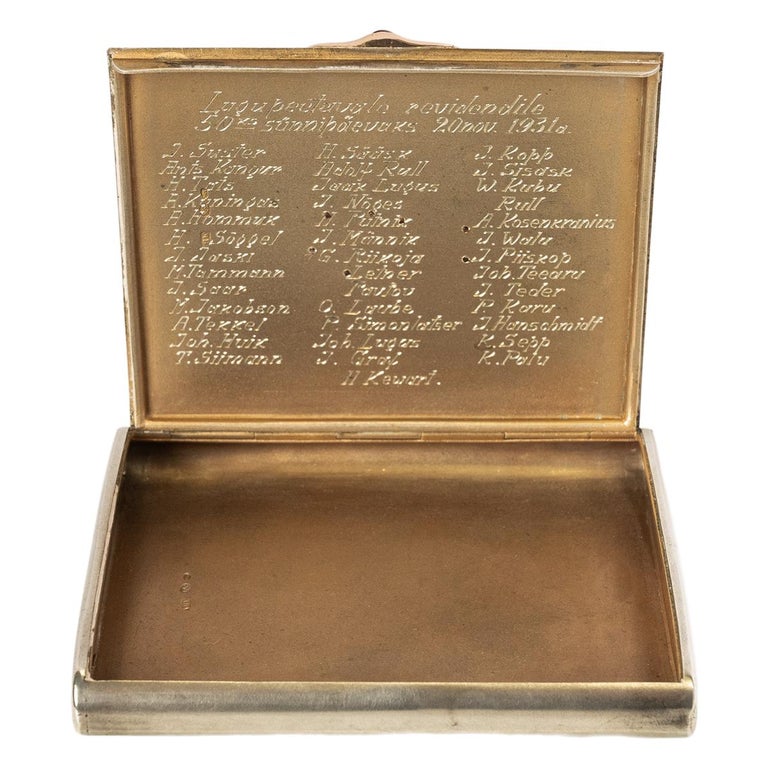 Lugupeetavale revidendile
50ks sünnipäevaks 20 nov. 1931 a.
J. Suster
Ants Kangur
A. Tals
A. Kaningas
A. Hommuk
H. Söggel
J. Jaski
M. Tammann
J. Saar
M. Jakobson
A. Tekkel
Joh. Huik
T. Siimann
H. Söösk
Adolf Rull
Jaak Lugus
J. Nõges
H.
J. Männik
G. Riikoja
Leiner
O. Laube
P. Simonlatser
Joh. Lugus
J. Graf
H Kewart.
J. Kopp
J. Sisask
W. Kubu
Rull
A. Rosenkranius
J. Walu
J. Piiskop
Joh. Teearu
J. Teder
P. Karu
J. Hanschmidt
K. Sepp
K. Palu